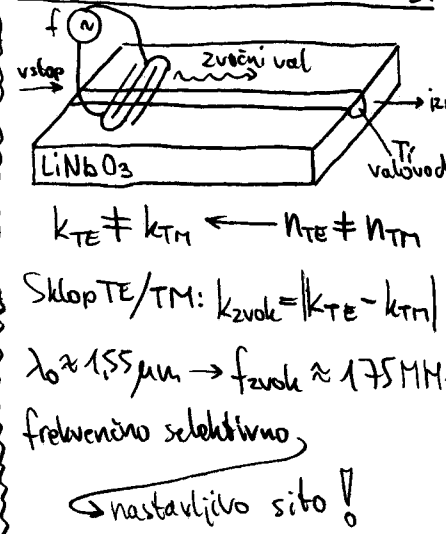 f ~
zvočni val
vstop
LiNbO3
Ti
valovod
kTE ≠ kTM ← nTE ≠ nTM
Sklop TE/TM: kzvok=|kTE-kTM|
λ0≈1,55μm→fzvok≈175MH
frekvenčno selektivno
nastavljivo sito!